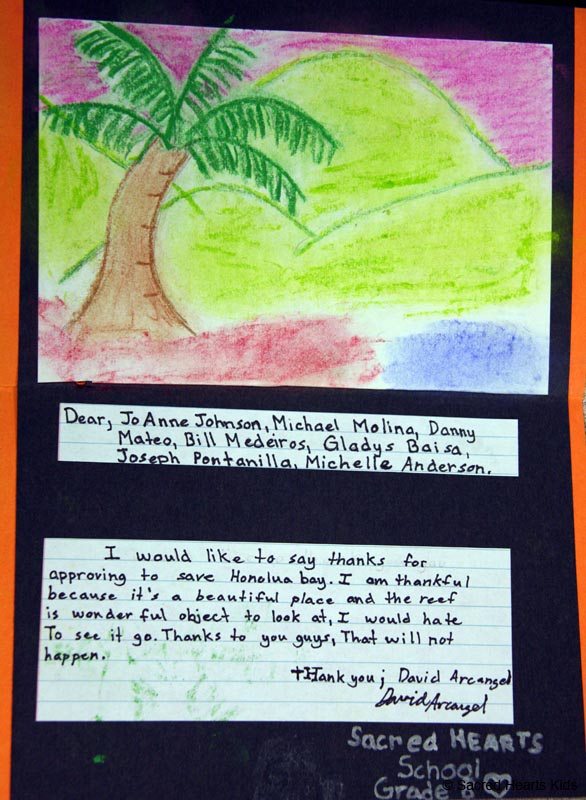 Dear, JoAnne Johnson, Michael Molina, Danny
Mateo, Bill Medeiros, Gladys Baisa,
Joseph Pontanilla, Michelle Anderson.
I would like to say thanks for
approving to save Honolua bay. I am thankful
because it's a beautiful place and the reef
is wonderful object to look at, I would hate
To see it go. Thanks to you guys, That will not
happen.
Thank you; David Arcangel
David Arcangel
Sacred HEARTS
School
Grade
© Sacred Hearts Kids